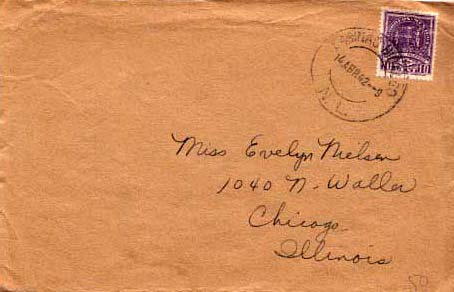 14 ABR 42 -- 9
N. L.
10
Miss Evelyn Nielsen
1040 N. Waller
Chicago
Illinois
50